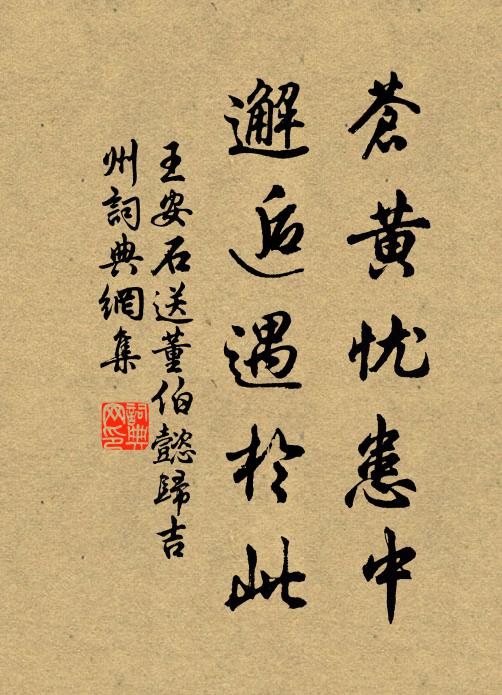 蒼黃忧患中
邂逅遇於此
王安石送董伯懿歸吉
州詞典網集
詞典
网印